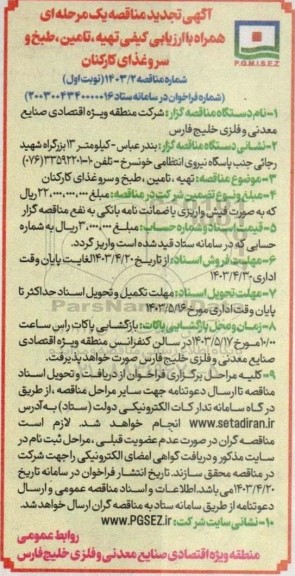 آگهی تجدید مناقصه یک مرحله ای
همراه با ارزیابی کیفی تهیه، تامین، طبخ و
سرو غذای کارکنان
P.G.M.I.S.E.Z
شماره مناقصه ۱۴۰۳/۲ (نوبت اول)
(شماره فراخوان در سامانه ستاد ۲۰۰۳۰۰۴۳۴۰۰۰۰۰۱۶)
۱- نام دستگاه مناقصه گزار: شرکت منطقه ویژه اقتصادی صنایع
معدنی و فلزی خلیج فارس
۲- نشانی دستگاه مناقصه گزار: بندرعباس - کیلومتر ۱۳ بزرگراه شهید
رجائی جنب پاسگاه نیروی انتظامی خونسرخ - تلفن ۱۰-۳۳۵۹۲۲۰۱ (۰۷۶)
۳- موضوع مناقصه: تهیه، تامین، طبخ و سرو غذای کارکنان
۴- مبلغ و نوع تضمین شرکت در مناقصه: مبلغ ۲۲,۰۰۰,۰۰۰,۰۰۰ ریال
که به صورت فیش واریزی یا ضمانت نامه بانکی به نفع مناقصه گزار
۵- قیمت اسناد و شماره حساب: مبلغ ۳,۰۰۰,۰۰۰ ریال به شماره
حسابی که در سامانه ستاد قید شده است واریز گردد.
۶- مهلت فروش اسناد: از تاریخ ۱۴۰۳/۴/۲۰ لغایت پایان وقت
اداری ۱۴۰۳/۴/۳۰
۷- مهلت تحویل اسناد: مهلت تکمیل و تحویل اسناد حداکثر تا
پایان وقت اداری مورخ ۱۴۰۳/۵/۱۶
۸- زمان و محل بازگشایی پاکات: بازگشایی پاکات راس ساعت
۱۰/۰۰ مورخ ۱۴۰۳/۵/۱۷ در سالن کنفرانس منطقه ویژه اقتصادی
صنایع معدنی و فلزی خلیج فارس صورت خواهد پذیرفت.
۹- کلیه مراحل برگزاری فراخوان از دریافت و تحویل اسناد
مناقصه تا ارسال دعوتنامه جهت سایر مراحل مناقصه، از طریق
درگاه سامانه تدارکات الکترونیکی دولت (ستاد) به آدرس
www.setadiran.ir انجام خواهد شد. لازم است
مناقصه گران در صورت عدم عضویت قبلی، مراحل ثبت نام در
سایت مذکور و دریافت گواهی امضای الکترونیکی را جهت شرکت
در مناقصه محقق سازند. تاریخ انتشار فراخوان در سامانه تاریخ
۱۴۰۳/۴/۲۰ می باشد. اطلاعات و اسناد مناقصه عمومی و ارسال
دعوتنامه از طریق سامانه ستاد به مناقصه گران ارسال خواهد شد.
۱۰- نشانی سایت شرکت: www.PGSEZ.ir
روابط عمومی
منطقه ویژه اقتصادی صنایع معدنی و فلزی خلیج فارس